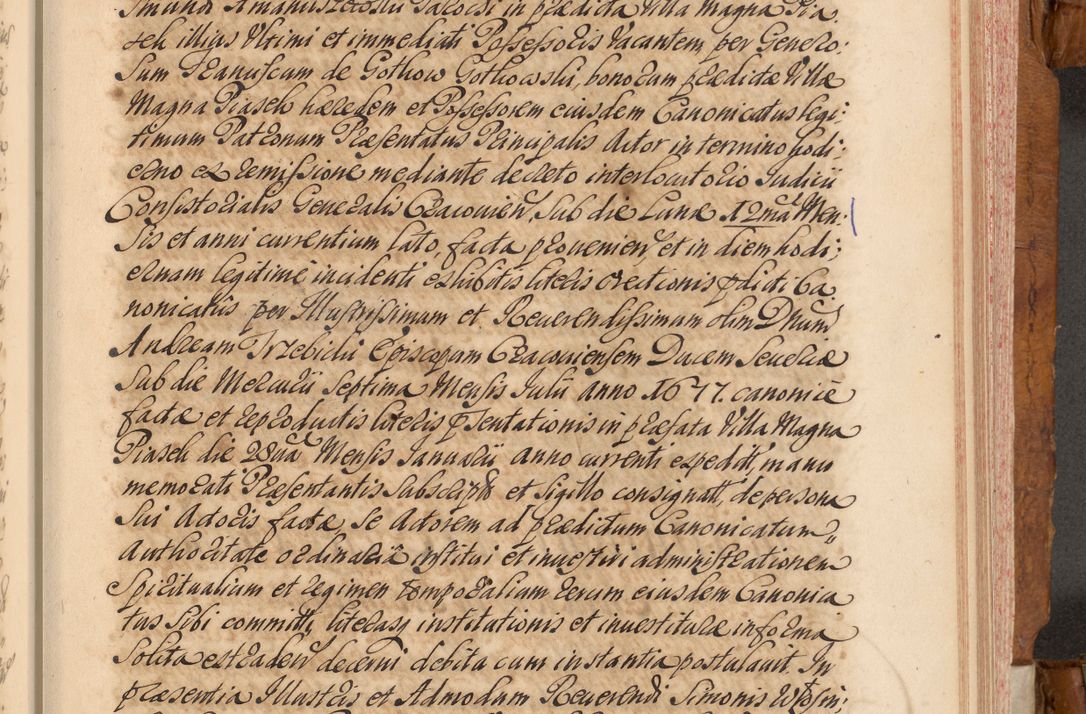 in prædicta Villa magna Pia
sek illius Ultimi et immediati Possessoris Vacantem, per Genero:
sum Franciscum de Gothow Gothowski, bonorum prædictæ Villæ
Magna Piasek hæredem et Possessorem eiusdem Canonicatus legi:
timum Patronum Præsentatus Principalis Actor in termino hodi:
erno ex remissione mediante decreto interlocutorio Iudicii
Consistorialis Generalis Cracovien, sub die Lunæ 12ma Men:
sis et anni currentium lato, facta provenien et in diem hodi:
ernum legitime incidenti exhibitis literis erectionis pdicti Ca
nonicatus per Illustrissimum et Reverendissimum olim Dnum
Andream Trzebicki Episcopum Cracoviensem Ducem Severiæ
sub die Mercurii Septima Mensis Iulii anno 1677. canonice
factæ et reproductis literis psentationis in præfata Villa Magna
Piasek die 28va Mensis Ianuarii anno currenti expedit, manu
memorati Præsentantis subscriptis et sigillo consignatt, de persona
sui Actoris factæ, se Actorem ad prædictum Canonicatum
Authoritate ordinaria institui et investiri administrationem
Spiritualium et regimen temporalium rerum eiusdem Canonica
tus sibi committi, literasq institutionis et investituræ in forma
solita extraden decerni debita cum instantia postulavit. In
præsentia Illustris et Admodum Reverendi Simonis